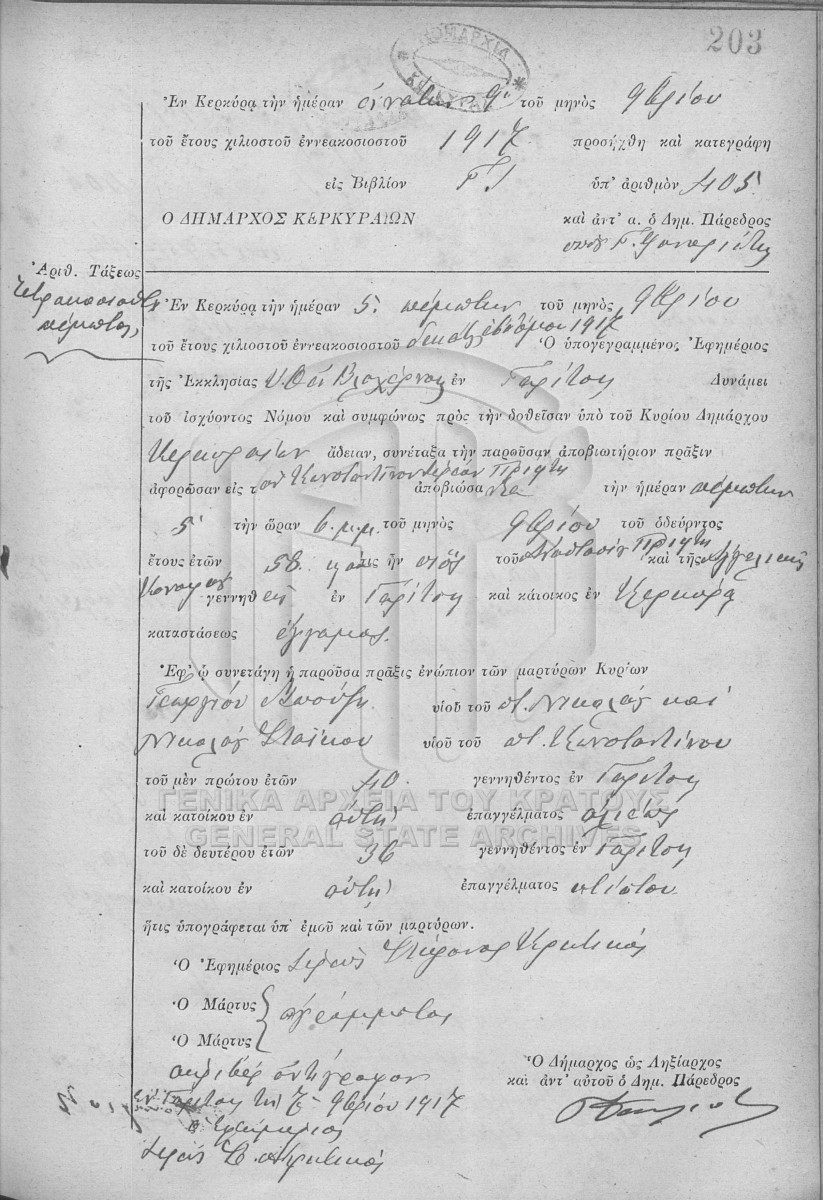 203
ΔΗΜΑΡΧΙΑ
ΚΕΡΚΥΡΑ
Ἐν Κερκύρᾳ τὴν ἡμέραν ἐνάτην 9 τοῦ μηνὸς 9βρίου
τοῦ ἔτους χιλιοστοῦ ἐννεακοσιοστοῦ 1917 προσήχθη καὶ κατεγράφη
εἰς Βιβλίον Γ ὑπ' ἀριθμὸν 405
Ο ΔΗΜΑΡΧΟΣ ΚΕΡΚΥΡΑΙΩΝ καὶ ἀντ' α. ὁ Δημ. Πάρεδρος
Ἀριθ. Τάξεως
Τετρακοσιοστὴ
πέμπτη
Ἐν Κερκύρᾳ τὴν ἡμέραν 5 πέμπτην τοῦ μηνὸς 9βρίου
τοῦ ἔτους χιλιοστοῦ ἐννεακοσιοστοῦ δεκάτου ἑβδόμου 1917 Ὁ ὑπογεγραμμένος Ἐφημέριος
τῆς Ἐκκλησίας Βλαχέρνας ἐν Γαρίτσῃ Δυνάμει
τοῦ ἰσχύοντος Νόμου καὶ συμφώνως πρὸς τὴν δοθεῖσαν ὑπὸ τοῦ Κυρίου Δημάρχου
Κερκυραίων ἄδειαν, συνέταξα τὴν παροῦσαν ἀποβιωτήριον πρᾶξιν
ἀφορῶσαν εἰς τὸν Κωνσταντῖνον Πρίφτη ἀποβιώσαντα τὴν ἡμέραν πέμπτην
5 τὴν ὥραν 6 μ.μ. τοῦ μηνὸς 9βρίου τοῦ ὁδεύοντος
ἔτους ἐτῶν 58 ὅστις ἦν υἱὸς τοῦ Ἀναστασίου Πρίφτη καὶ τῆς Ἀγγελικῆς
γεννηθεὶς ἐν Γαρίτσῃ καὶ κάτοικος ἐν Κερκύρᾳ
καταστάσεως ἔγγαμος.
Ἐφ' ᾧ συνετάγη ἡ παροῦσα πρᾶξις ἐνώπιον τῶν μαρτύρων Κυρίων
Γεωργίου υἱοῦ τοῦ π. Νικολάου καὶ
Νικολάου Στάικου υἱοῦ τοῦ π. Κωνσταντίνου
τοῦ μὲν πρώτου ἐτῶν 40 γεννηθέντος ἐν Γαρίτσῃ
καὶ κατοίκου ἐν αὐτῇ ἐπαγγέλματος ἁλιέως
ΓΕΝΙΚΑ ΑΡΧΕΙΑ ΤΟΥ ΚΡΑΤΟΥΣ
GENERAL STATE ARCHIVES
τοῦ δὲ δευτέρου ἐτῶν 36 γεννηθέντος ἐν Γαρίτσῃ
καὶ κατοίκου ἐν αὐτῇ ἐπαγγέλματος κτίστου
ἥτις ὑπογράφεται ὑπ' ἐμοῦ καὶ τῶν μαρτύρων.
Ὁ Ἐφημέριος Ἱερεὺς Κρητικὸς
Ὁ Μάρτυς
ἀγράμματοι
Ὁ Μάρτυς
ἀκριβὲς ἀντίγραφον
Ἐν Γαρίτσῃ τῇ 7 9βρίου 1917
Ὁ Ἐφημέριος
Ἱερεὺς Σ. Κρητικὸς
Ὁ Δήμαρχος ὡς Ληξίαρχος
καὶ ἀντ' αὐτοῦ ὁ Δημ. Πάρεδρος